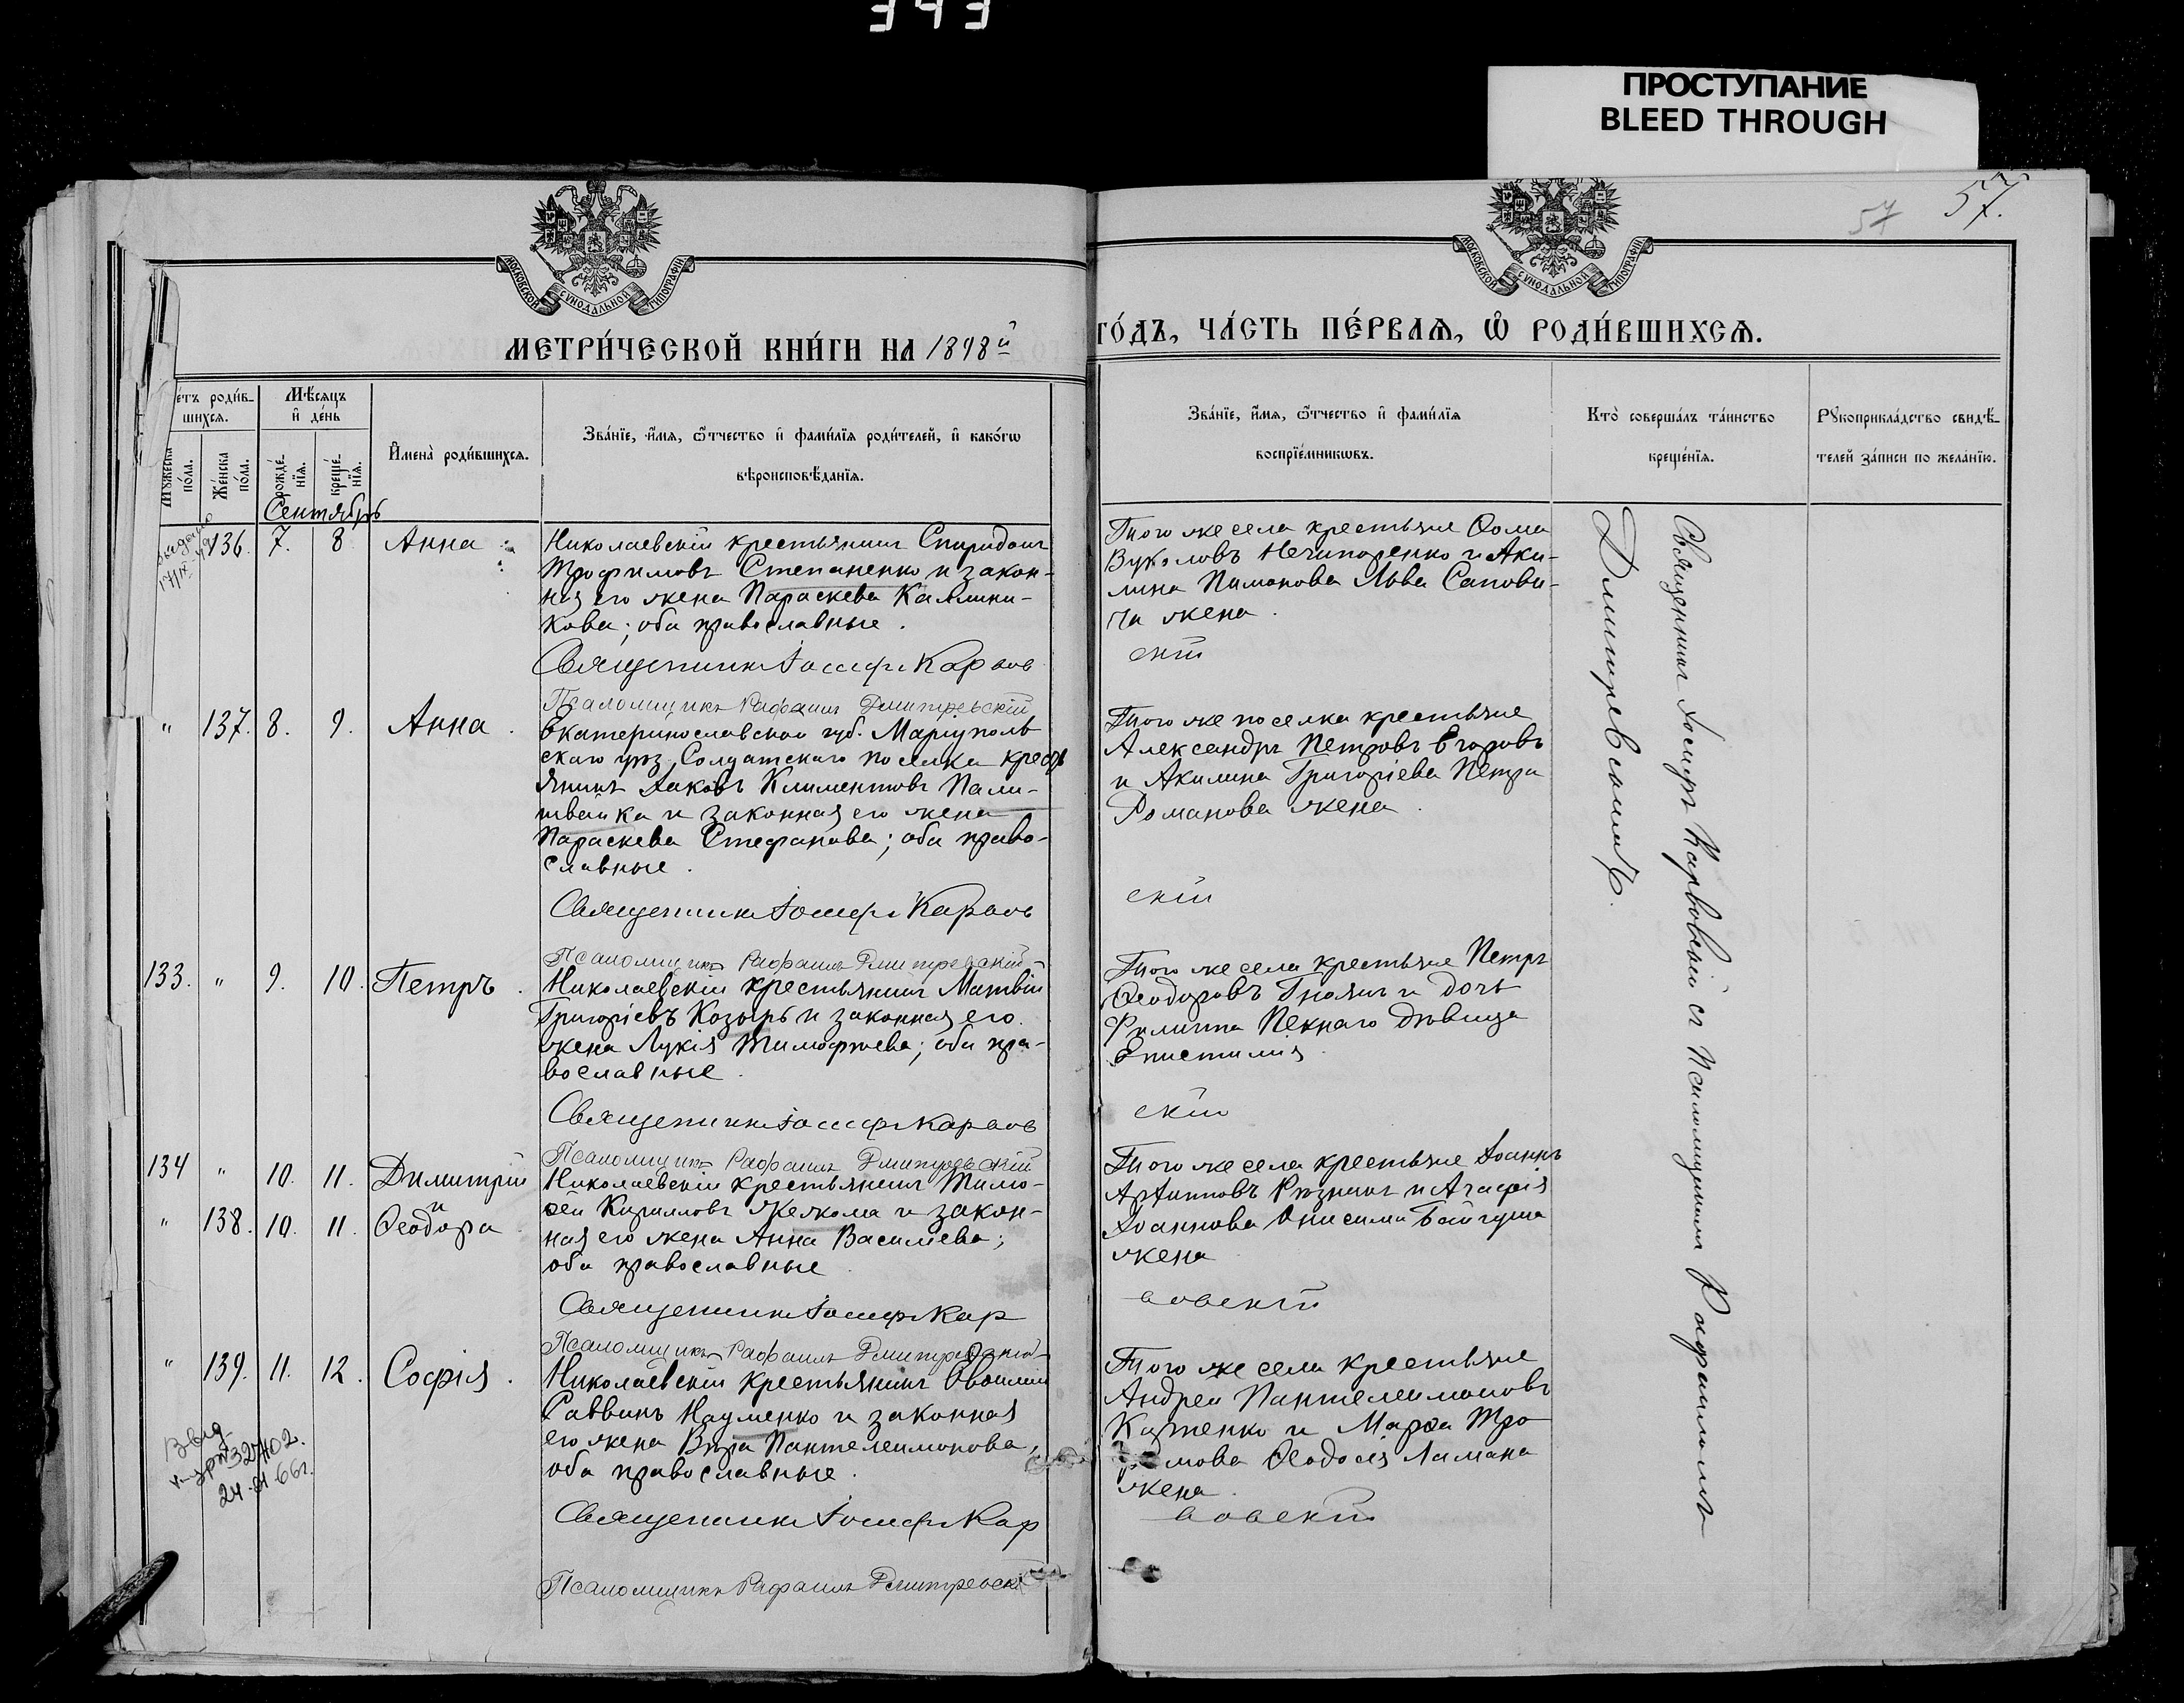 343
ПРОСТУПАНИЕ
BLEED THROUGH
57
57.
МОСКОВСКОЙ СУНОДАЛЬНОЙ ТИПОГРАФІИ
МОСКОВСКОЙ СУНОДАЛЬНОЙ ТИПОГРАФІИ
МЕТРИ́ЧЕСКОЙ КНИ́ГИ НА 1898й
ГО́ДЪ, ЧА́СТЬ ПЕ́РВАЯ, Ѡ РОДИ́ВШИХСЯ.
етъ роди́в-
шихся.
Мужеска по́ла.
Же́нска по́ла.
Мѣ́сяцъ и де́нь
рожде́нія.
креще́нія.
Имена̀ роди́вшихся.
Зва́ніе, и́мя, ѻ҆́тчество и фами́лія роди́телей, и како́гѡ
вѣроисповѣ́данія.
Зва́ніе, и́мя, ѻ҆́тчество и фами́лія
воспріе́мникѡвъ.
Кто̀ соверша́лъ та́инство
креще́нія.
Рꙋкоприкла́дство свидѣ́-
телей за́писи по жела́нію.
Сентябрь
136. 7. 8 Анна
Николаевскій крестьянинъ Спиридонъ
Трофимовъ Степаненко и закон-
ная его жена Параскева Каллини-
кова; оба православные.
Священникъ Іосифъ Карвов
Псаломщикъ Рафаилъ Дмитревскій
Того же села крестьяне Ѳома
Вуколовъ Нечипоренко и Аки-
лина Пимонова Льва Сапови-
ча жена
скій
" 137. 8. 9. Анна.
Екатеринославской губ. Маріуполь
скаго уѣз. Солдатскаго поселка кресть
янинъ Іаковъ Климентовъ Пали-
швайка и законная его жена
Параскева Стефанова; оба право-
славные.
Священникъ Іосифъ Карвов
Псаломщикъ Рафаилъ Дмитревскій
Того же поселка крестьяне
Александръ Петровъ Егоровъ
и Акилина Григоріева Петра
Романова жена.
скій
133. " 9. 10. Петръ.
Николаевскій крестьянинъ Матвій
Григоріевъ Козырь и законная его
жена Лукія Тимофѣева; оба пра-
вославные.
Священникъ Іосифъ Карвов
Псаломщикъ Рафаилъ Дмитревскій
Того же села крестьяне Петръ
Ѳеодоровъ и дочь
Филиппа Пекнаго дѣвица
Епистимія.
скій
134 " 10. 11. Димитрій
и
" 138. 10. 11. Ѳеодора
Николаевскій крестьянинъ Тимо-
ѳей Кирилловъ и закон-
ная его жена Анна Васильева;
оба православные.
Священникъ Іосифъ Кар
Псаломщикъ Рафаилъ Дмитревскій
Того же села крестьяне Іоаннъ
Архиповъ Рѣзникъ и Агафія
Іоаннова Онисима Байгуша
жена
вовскій
" 139. 11. 12. Софія.
Николаевскій крестьянинъ
Саввинъ Науменко и законная
его жена Вѣра Пантелеимонова,
оба православные.
Священникъ Іосифъ Кар
Псаломщикъ Рафаилъ Дмитревск
Того же села крестьяне
Андрей Пантелеимоновъ
и Марѳа Тро
имова Ѳеодосія Лимана
жена.
вовскій
24
66г.
Священникъ Іосифъ Карвовскій съ Псаломщикомъ Рафаиломъ
Дмитревскимъ.